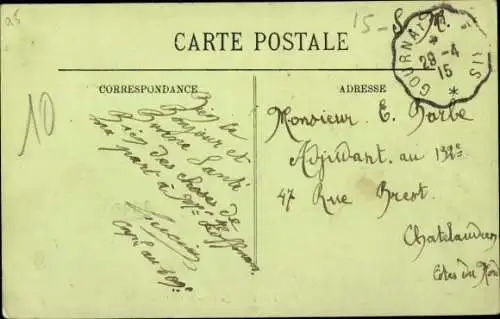 15-S
CARTE POSTALE
GOURNAY
28-4
15
*
10
CORRESPONDANCE
Bien le
Bonjour et
Bonne Santé
Bien des choses de
ma part à Mr
Lucien
ADRESSE
Monsieur E. Barbe
Adjudant. au 132e
47 Rue Brest.
Chatelaudren
Côtes du Nord